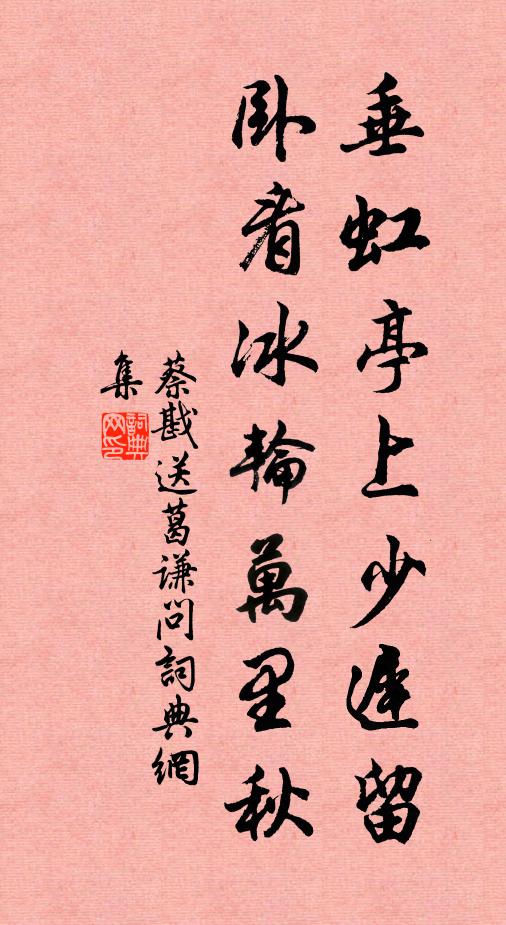 垂虹亭上少遲留
卧看冰輪萬里秋
蔡戡送葛謙問詞典網
集
詞典網印